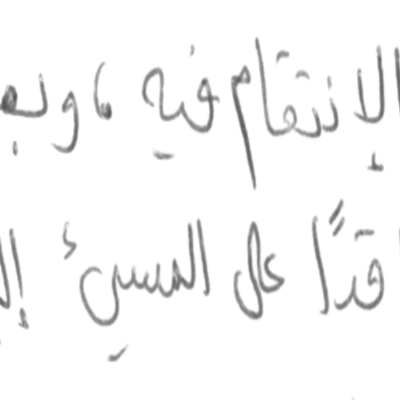 الإنتقام فيه ، وبـ
قدًا على المسيئ إلـ